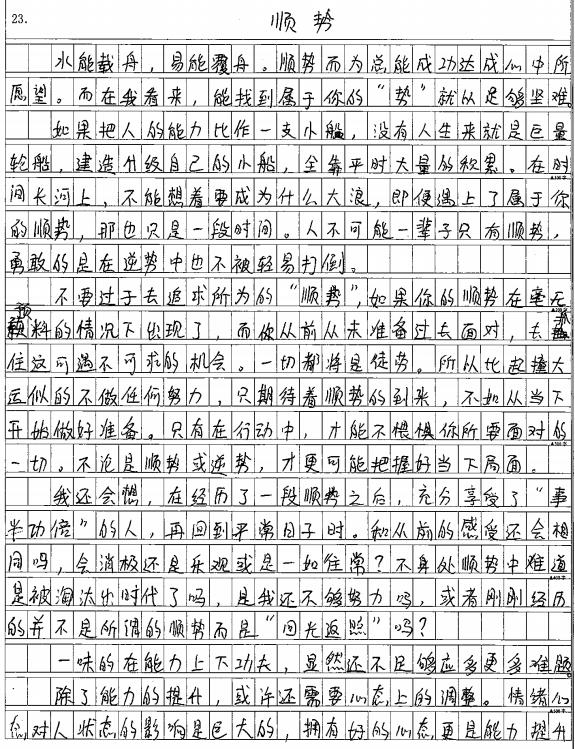 23.
顺势
水能载舟，易能覆舟。顺势而为总能成功达成心中所
愿望。而在我看来，能找到属于你的“势”就从足够坚难。
如果把人的能力比作一支小船，没有人生来就是巨量
轮船，建造升级自己的小船，全靠平时大量的积累。在时
间长河上，不能想着要成为什么大浪，即便遇上了属于你
的顺势，那也只是一段时间。人不可能一辈子只有顺势，
勇敢的是在逆势中也不被轻易打倒。
不要过于去追求所为的“顺势”，如果你的顺势在毫无
预料的情况下出现了，而你从前从未准备过去面对，去抓
住这可遇不可求的机会。一切都将是徒势。所以比起撞大
运似的不做任何努力，只期待着顺势的到来，不如从当下
开始做好准备。只有在行动中，才能不惧惧你所要面对的
一切。不论是顺势或逆势，才更可能把握好当下局面。
我还会想，在经历了一段顺势之后，充分享受了“事
半功倍”的人，再回到平常日子时。和从前的感受还会相
同吗，会消极还是乐观或是一如往常？不身处顺势中难道
是被淘汰出时代了吗，是我还不够努力吗，或者刚刚经历
的并不是所谓的顺势而是“回光返照”吗？
一味的在能力上下功夫，显然还不足够应多更多难题
除了能力的提升，或许还需要心态上的调整。情绪心
态对人状态的影响是巨大的，拥有好的心态更是能力提升